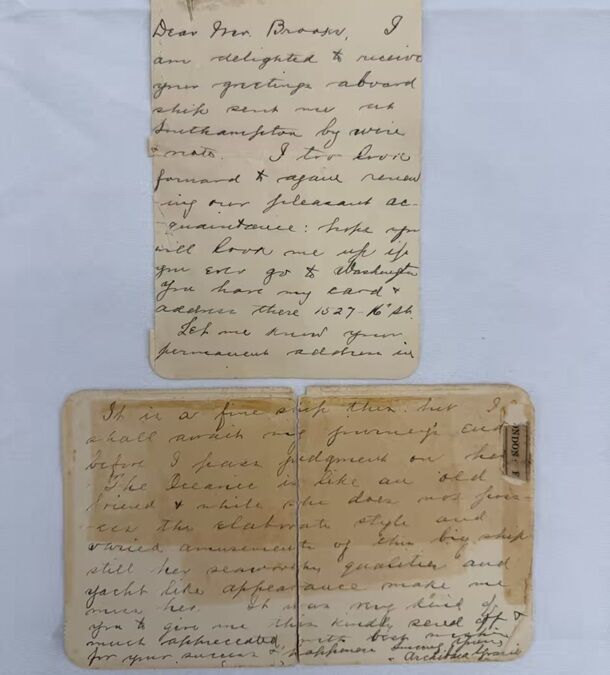 Dear Mr. Brooks, I
am delighted to receive
your greetings aboard
ship sent me at
Southampton by wire
& note. I too look
forward to again renew
-ing our pleasant ac-
-quaintance: hope you
will look me up if
you ever go to Washington
You have my card &
address there 1527-16" St.
Let me know your
permanent address in
It is a fine ship this but I
shall await my journeys end
before I pass judgment on her.
The Oceanic is like an old
friend & while she does not poss-
-ess the elaborate style and
varied amusements of this big ship
still her seaworthy qualities and
yacht like appearance make me
miss her. It was very kind of
you to give me this kindly send off &
much appreciated, with best wishes
for your success & happiness Sincerely Yours,
Archibald Gracie
NDON. E